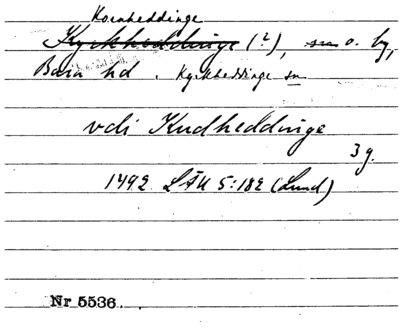 Kornheddinge
Kyrkheddinge (?), sn o. by,
Bara hd. Kyrkheddinge sn
vdi Kudheddinge
3 g.
1492 LÄU 5:182 (Lund)
Nr 5536.